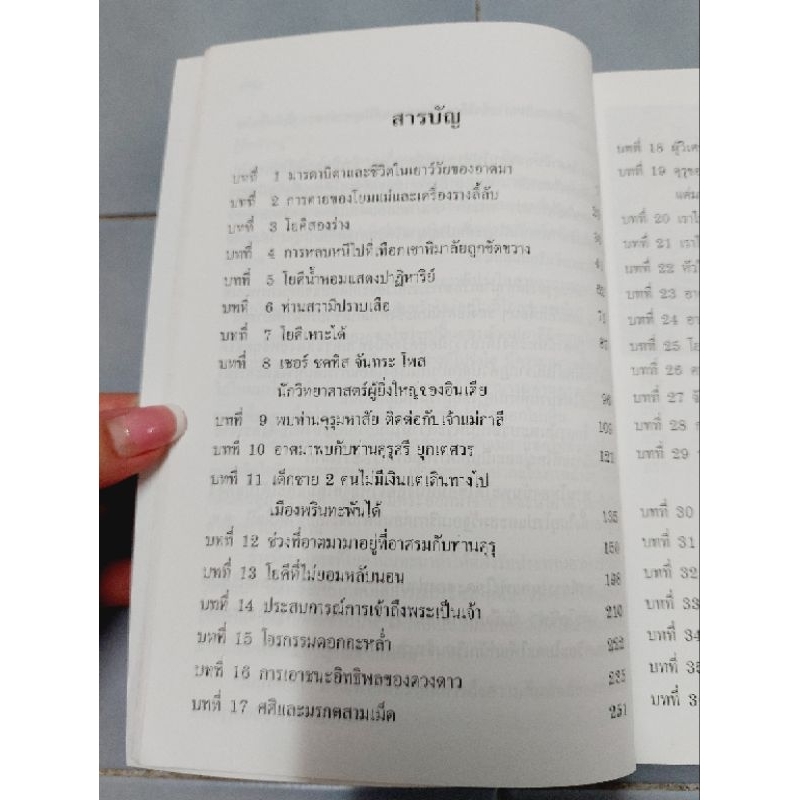 สารบัญ
บทที่ 1 มารดาบิดาและชีวิตในเยาว์วัยของอาตมา
บทที่ 2 การตายของโยมแม่และเครื่องรางลี้ลับ
บทที่ 3 โยคีสองร่าง
บทที่ 4 การหลบหนีไปที่เทือกเขาหิมาลัยถูกขัดขวาง
บทที่ 5 โยคีน้ำหอมแสดงปาฏิหาริย์
บทที่ 6 ท่านสวามีปราบเสือ 71
บทที่ 7 โยคีเหาะได้ 87
บทที่ 8 เซอร์ ชคทิส จันทระ โพส
นักวิทยาศาสตร์ผู้ยิ่งใหญ่ของอินเดีย 96
บทที่ 9 พบท่านคุรุมหาสัย ติดต่อกับเจ้าแม่กาลี 109
บทที่ 10 อาตมาพบกับท่านคุรุศรี ยุกเตศวร 121
บทที่ 11 เด็กชาย 2 คนไม่มีเงินแต่เดินทางไป
เมืองพรินทะพันได้ 135
บทที่ 12 ช่วงที่อาตมามาอยู่ที่อาศรมกับท่านคุรุ 150
บทที่ 13 โยคีที่ไม่ยอมหลับนอน 198
บทที่ 14 ประสบการณ์การเข้าถึงพระเป็นเจ้า 210
บทที่ 15 โจรกรรมดอกกะหล่ำ 222
บทที่ 16 การเอาชนะอิทธิพลของดวงดาว 235
บทที่ 17 ศศิและมรกตสามเม็ด 251
บทที่ 18 ผู้วิเศ
บทที่ 19 คุรุขอ
บทที่ 20 เราไ
บทที่ 21 เราไ
บทที่ 22 หัวใ
บทที่ 23 อา
บทที่ 24 อา
บทที่ 25 โย
บทที่ 26
บทที่ 27
บทที่ 28
บทที่ 29
บทที่ 30
บทที่ 31
บทที่ 32
บทที่ 33
บทที่ 34
บทที่ 35
บทที่ 3